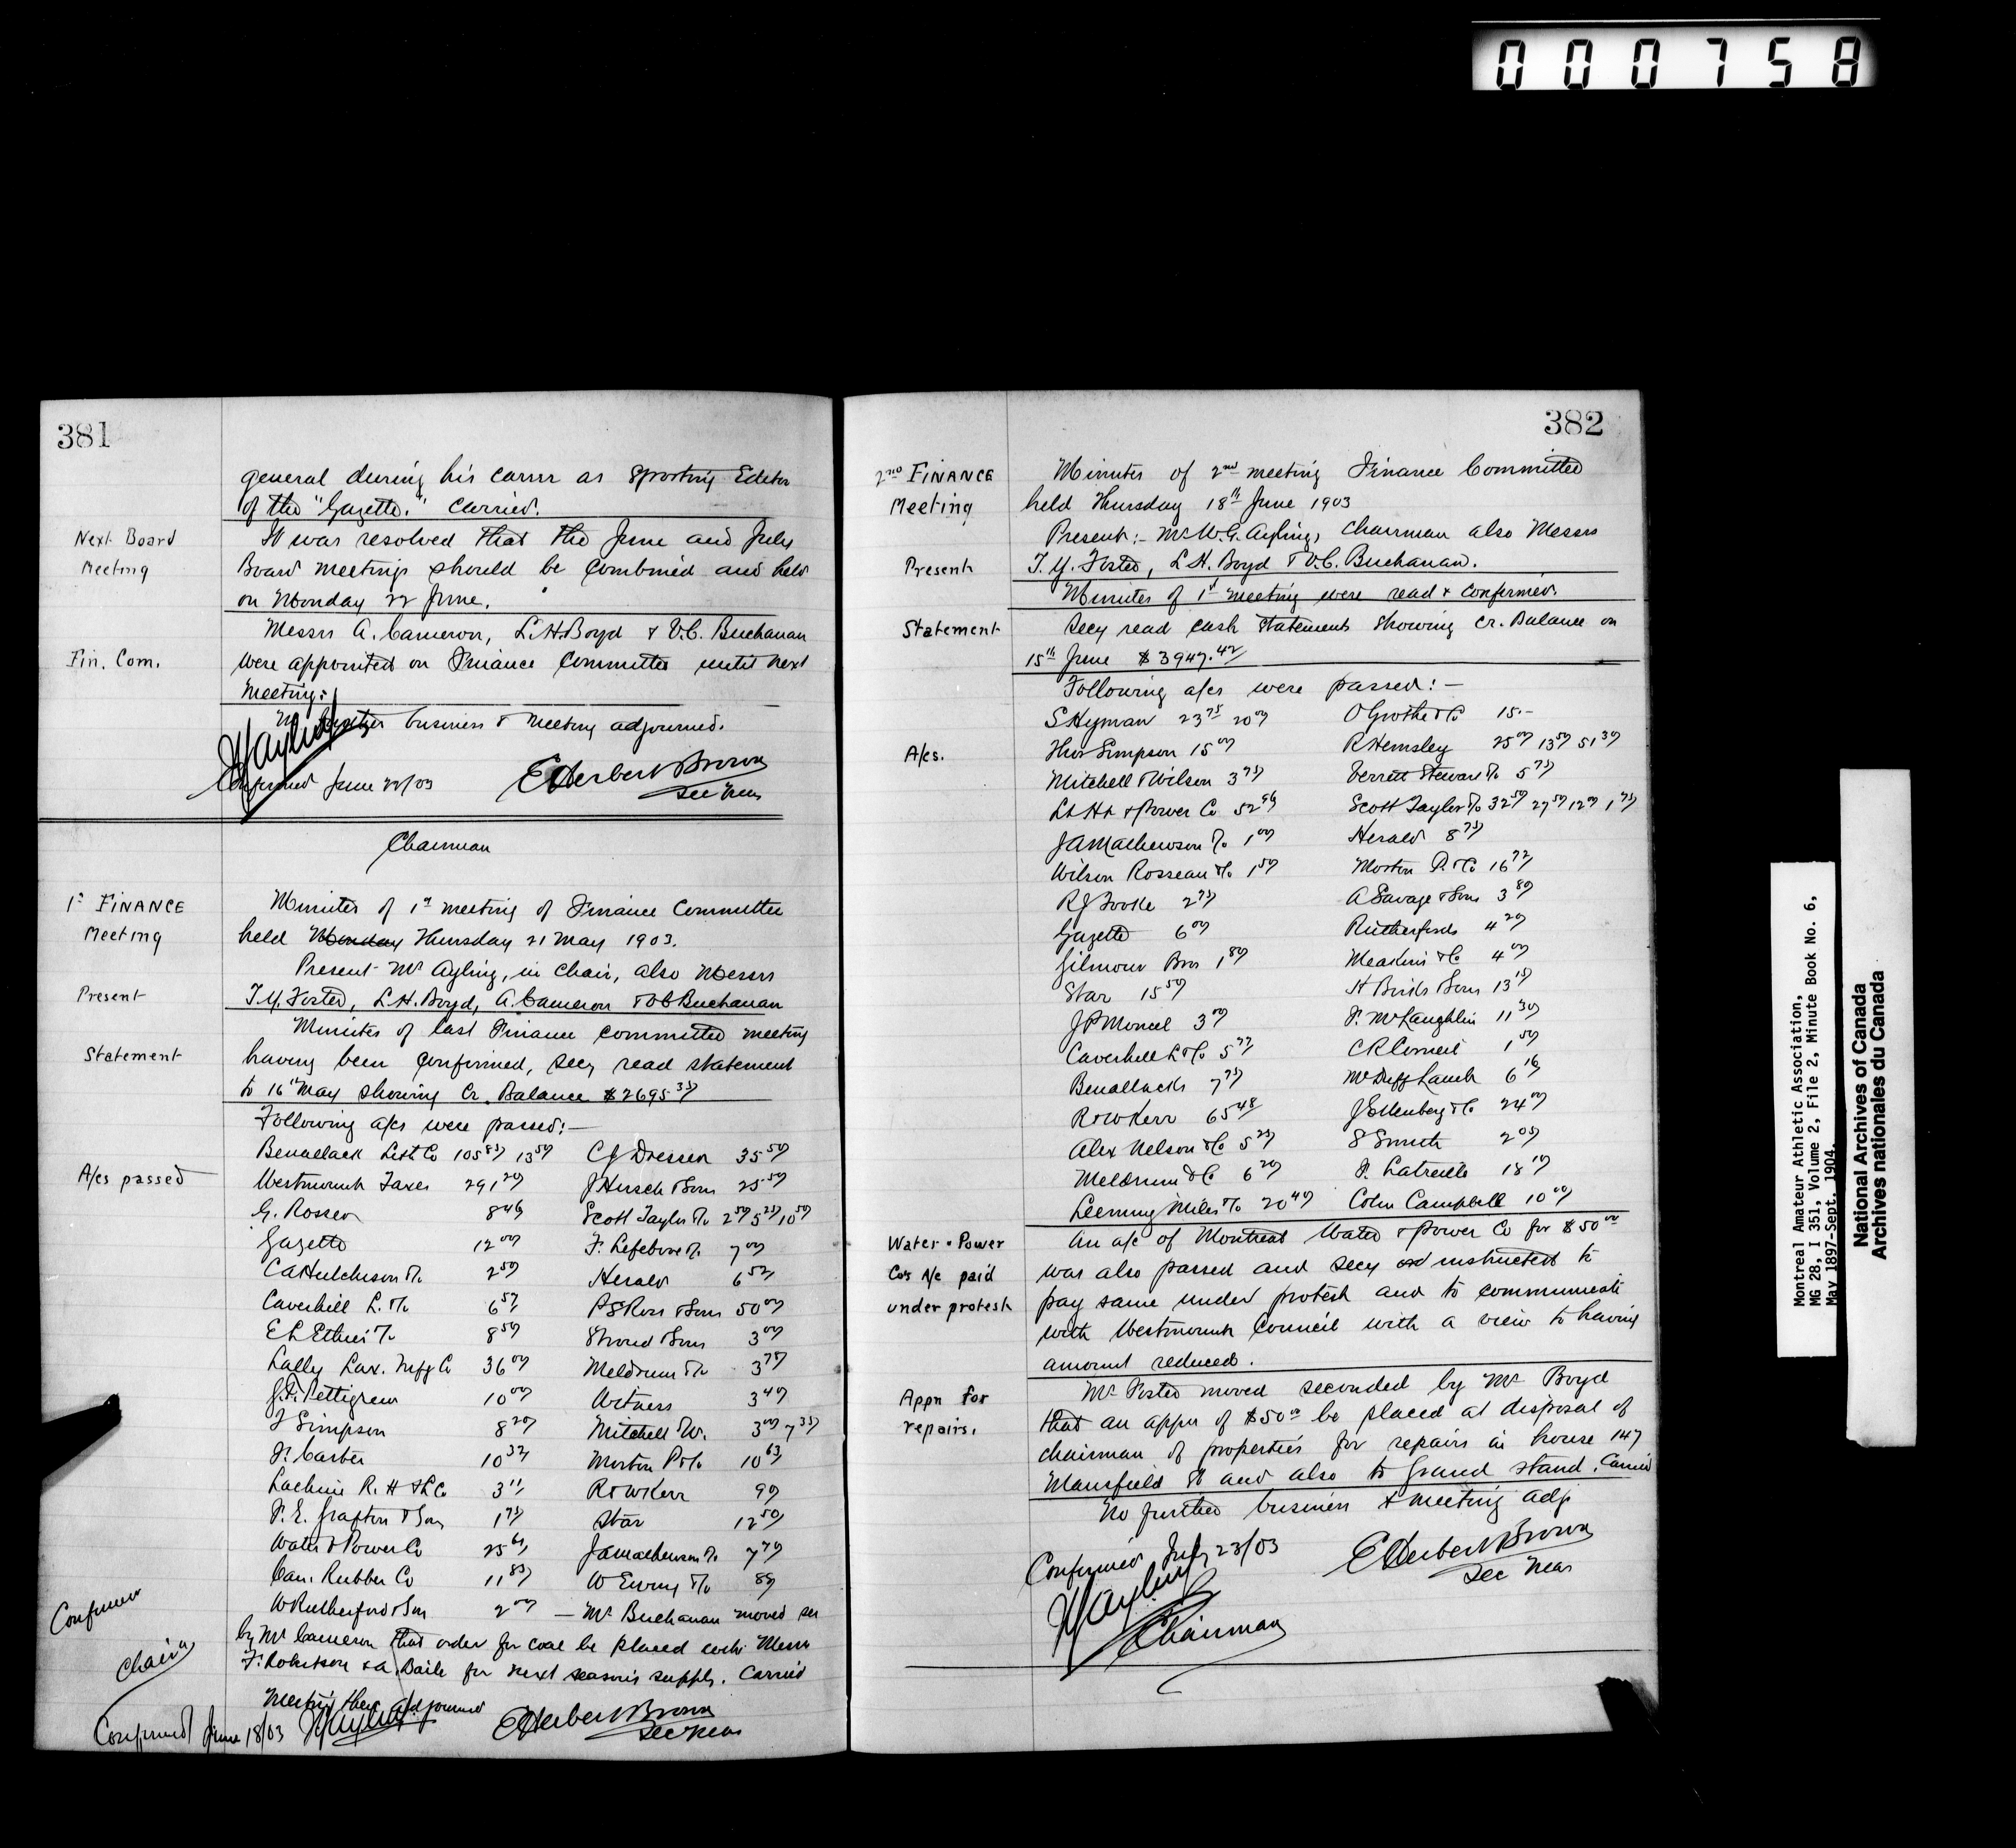 000758
381
general during his career as Sporting Editor
of the "Gazette." Carried.
Next Board
Meeting
It was resolved that the June and July
Board meetings should be combined and held
on Monday 22 June.
Fin. Com.
Messrs A. Cameron, L.H. Boyd & V.C. Buchanan
were appointed on Finance Committee until next
meeting.
No further business & meeting adjourned.
Confirmed June 22/03
E Herbert Brown
Sec Treas
Chairman
1st FINANCE
Meeting
Minutes of 1st meeting of Finance Committee
held Monday Thursday 21 May 1903.
Present
Present - Mr Ayling, in chair, also Messrs
T.Y. Foster, L.H. Boyd, A. Cameron & V C Buchanan
Statement
Minutes of last Finance Committee meeting
having been confirmed, Secy read statement
to 16th May showing Cr. Balance $2695.35
A/cs passed
Following a/cs were passed:—
Benallack Lith Co 105 85 13 50 C J Dressen 35 50
Westmount Taxes 291 20 J Hirsch & Sons 25 50
G. Rosser 8 46 Scott Taylor & Co 2 50 5 25 10 50
Gazette 12 00 F. Lefebvre & Co 7 00
C A Hutchison & Co 2 50 Herald 6 52
Caverhill L. & Co 6 57 P S Ross & Sons 50 00
E L Ethier & Co 8 50 Stroud & Sons 3 00
Lally Lax. Mfg Co 36 00 Meldrum & Co 3 75
J.F. Pettigrew 10 00 Witness 3 40
T Simpson 8 20 Mitchell & W. 3 00 7 35
F. Carter 10 32 Morton P & Co 10 63
Lachine R. H & L Co 3 11 R & W Kerr 90
F. E. Grafton & Sons 1 75 Star 12 50
Water & Power Co 25 61 J A Mathewson & Co 7 70
Can. Rubber Co 11 83 W Ewing & Co 80
W Rutherford & Son 2 00 — Mr Buchanan moved sec
by Mr Cameron that order for coal be placed with Messrs
F. Robertson & A. Baile for next season's supply. Carried
Meeting then adjourned
Confirmed
Chairn
Confirmed June 18/03
W Ayling
E Herbert Brown
Sec Treas
382
2nd FINANCE
Meeting
Minutes of 2nd meeting Finance Committee
held Thursday 18th June 1903
Present
Present:- Mr W.G. Ayling, Chairman also Messrs
T.Y. Foster, L.H. Boyd & V.C. Buchanan.
Minutes of 1st meeting were read & confirmed.
Statement
Secy read cash statement showing Cr. Balance on
15th June $3947.42
A/cs.
Following a/cs were passed:—
S Hyman 23 75 20 00 O Grothe & Co 15.-
Thos Simpson 15 00 R Hemsley 25 00 13 50 51 30
Mitchell & Wilson 3 75 Verrett Stewart & Co 5 75
L H & Power Co 52 96 Scott Taylor & Co 32 50 27 50 12 00 1 75
J A Mathewson & Co 1 00 Herald 8 75
Wilson Rosseau & Co 1 50 Morton P. & Co 16 72
R J Tooke 2 75 A Savage & Sons 3 80
Gazette 6 00 Rutherfords 4 20
Gilmour Bros 1 80 Meakins & Co 4 00
Star 15 50 H Birks & Sons 13 15
J P Moncel 3 00 F. McLaughlin 11 30
Caverhill L & Co 5 77 C R Corneil 1 50
Benallacks 7 75 McDuff Lamb 6 16
R & W Kerr 65 48 J Ellenberg & Co 24 00
Alex Nelson & Co 5 25 S Smith 2 05
Meldrum & Co 6 20 F. Latreille 18 10
Leeming Miles & Co 20 40 Colin Campbell 10 00
Water & Power
Cos A/c paid
under protest
An a/c of Montreal Water & Power Co for $50 00
was also passed and Secy instructed to
pay same under protest and to communicate
with Westmount Council with a view to having
amount reduced.
Appn for
repairs.
Mr Foster moved seconded by Mr Boyd
that an appn of $50 00 be placed at disposal of
chairman of properties for repairs in house 147
Mansfield St and also to Grand Stand. Carried
No further business & meeting adj
Confirmed July 23/03
W Ayling
Chairman
E Herbert Brown
Sec Treas
Montreal Amateur Athletic Association,
MG 28, I 351, Volume 2, File 2, Minute Book No. 6,
May 1897-Sept. 1904.
National Archives of Canada
Archives nationales du Canada